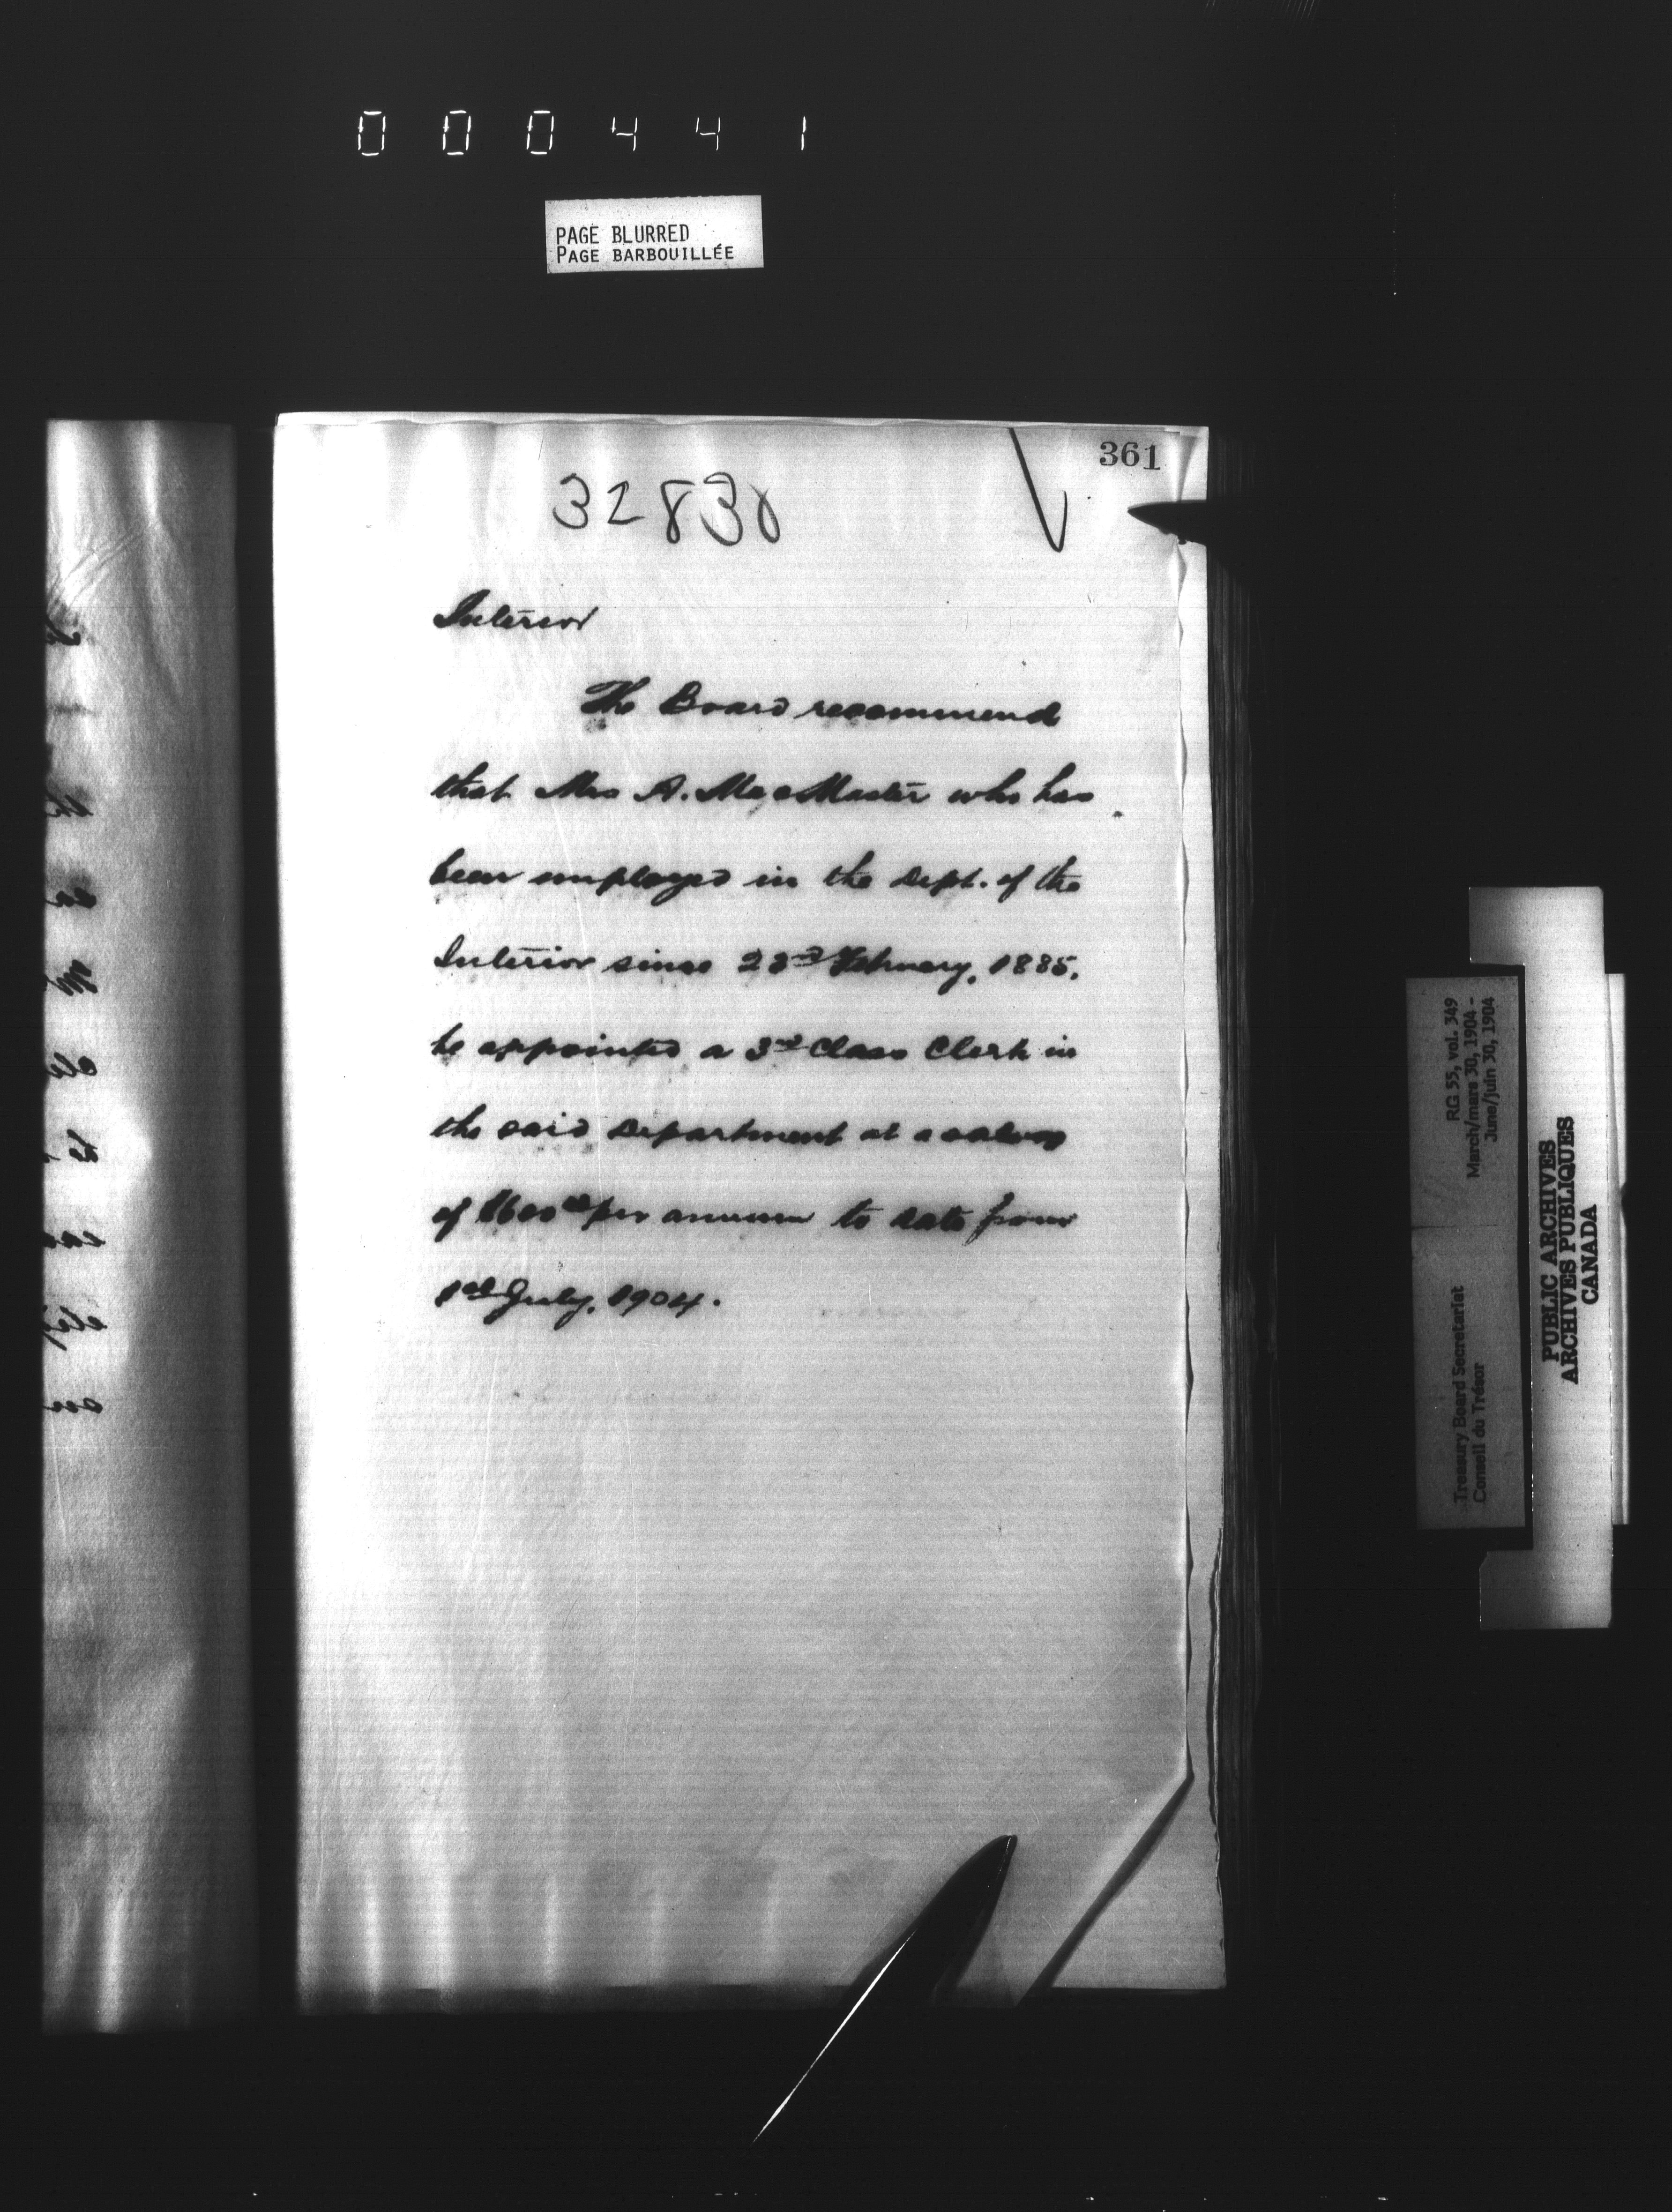 000441
PAGE BLURRED
PAGE BARBOUILLÉE
361
32830
Interior
The Board recommend
that Mrs A. MacMaster who has
been employed in the Dept. of the
Interior since 23rd February, 1885,
be appointed a 3rd Class Clerk in
the said Department at a salary
of $600.00 per annum to date from
1st July, 1904.
RG 55, vol. 349
March/mars 30, 1904 -
June/juin 30, 1904
Treasury Board Secretariat
Conseil du Trésor
PUBLIC ARCHIVES
ARCHIVES PUBLIQUES
CANADA